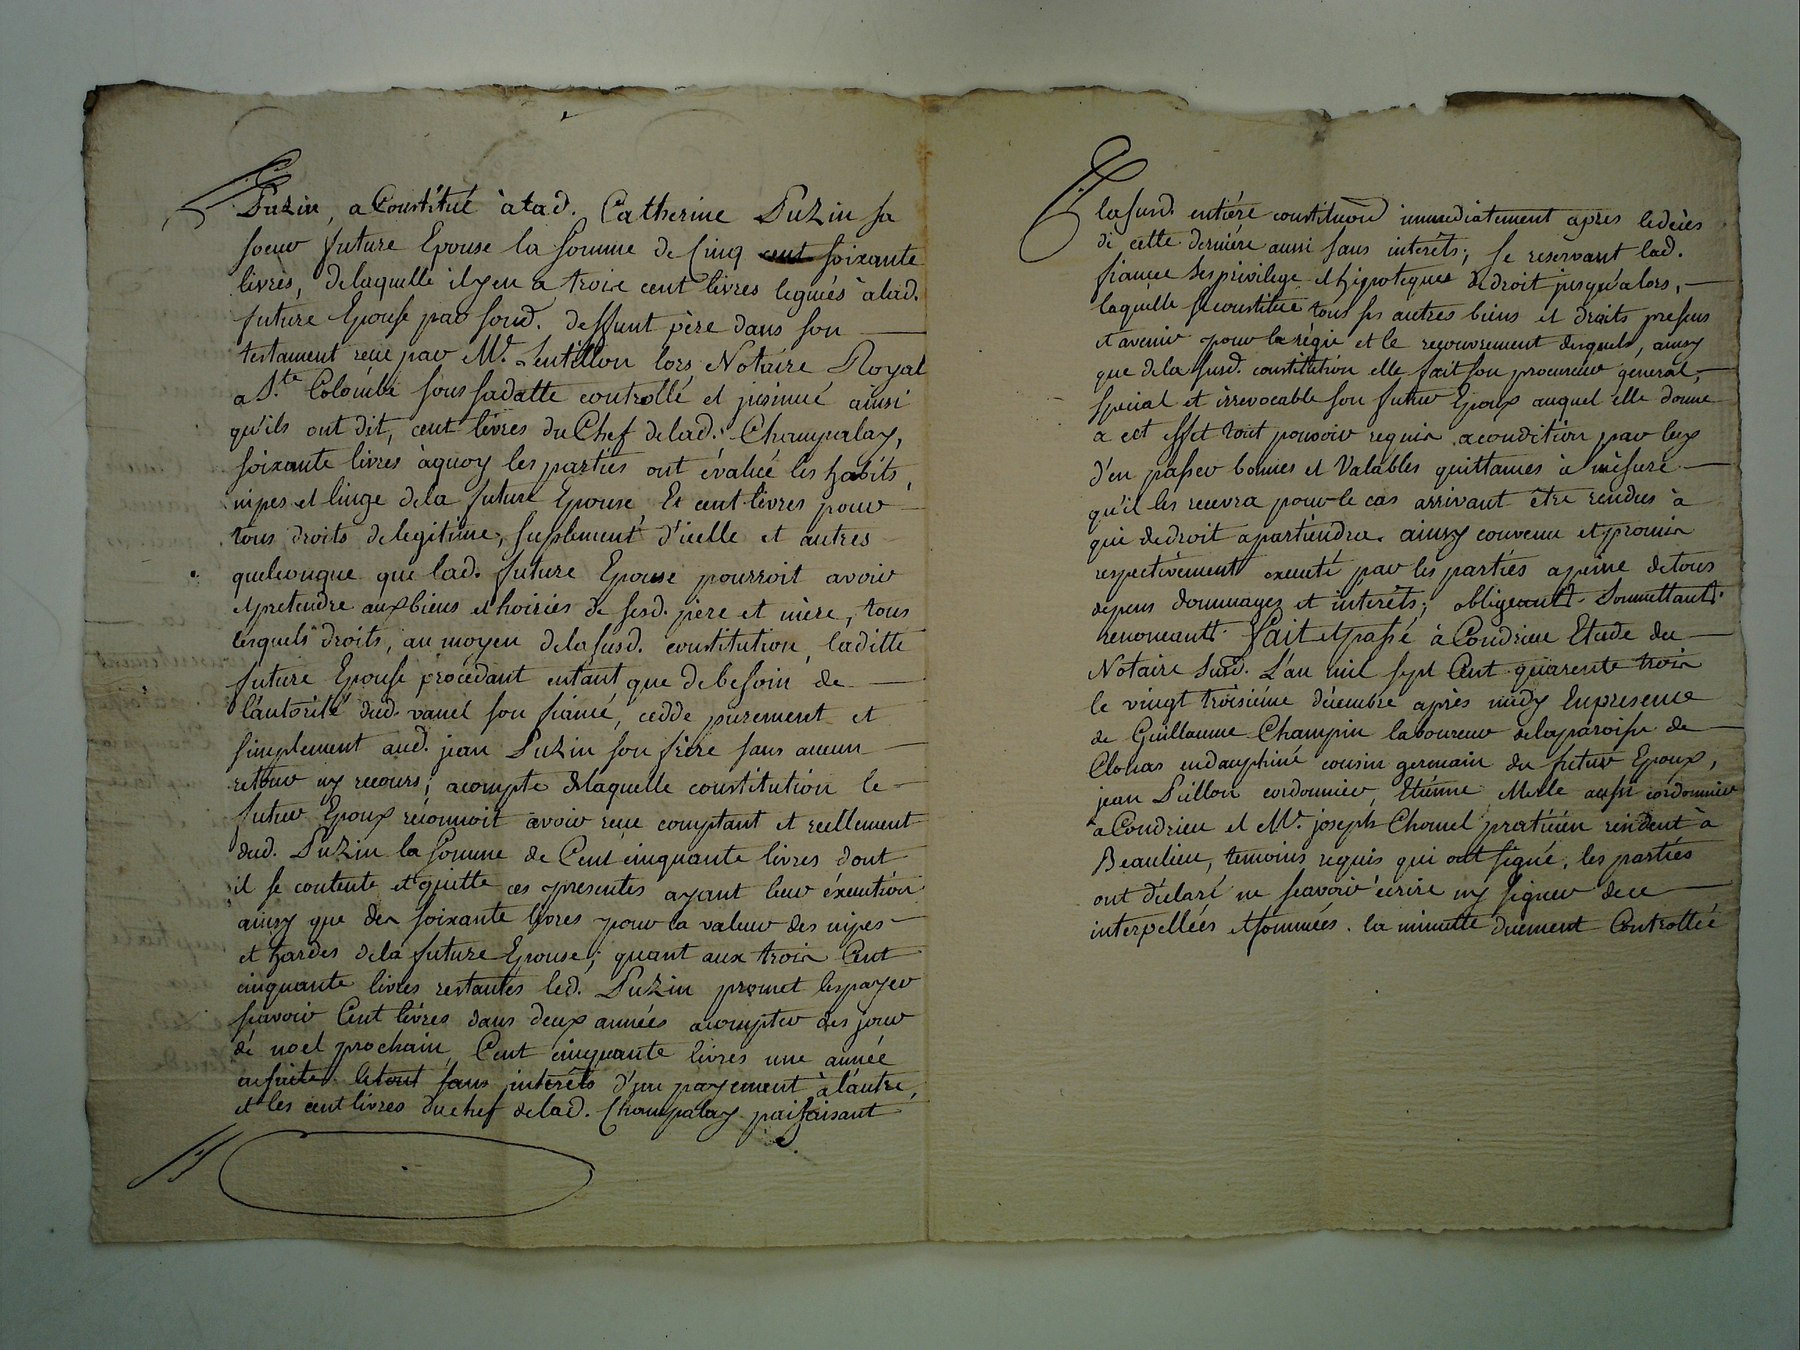 Puzin, a Constitué à lad. Catherine Puzin sa
soeur future Epouse la somme de Cinq cent soixante
livres, delaquelle il y en a trois cent livres legués à lad.
future Epouse par sond. deffunt père dans son
testament reçu par Mr. Lentillon lors Notaire Royal
a Ste. Colombe sous sadatte controllé et jnsinué ainsi
qu'ils ont dit, cent livres du Chef delad. Champalay,
soixante livres àquoy les parties ont évalué les habits,
nipes et linge dela future Epouse Et cent livres pour
tous droits delegitime, suplement d'icelle et autres
quelconque que lad. future Epouse pourroit avoir
et pretendre aux biens et hoiries de sesd. père et mère, tous
lesquels droits, au moyen delasusd. constitution, laditte
future Epouse procedant entant que debesoin de
l'autorité dud. vanel son fiancé, cedde purement et
simplement aud. jean Puzin son frère sans aucun
retour ny recours; acompte delaquelle constitution le
futur Epoux réconnoit avoir reçu comptant et reellement
dud. Puzin la somme de Cent cinquante livres dont
il se contente et quitte ces presentes ayant leur éxecution
ainsy que des soixante livres pour la valeur des nipes
et hardes dela future Epouse; quant aux trois Cent
cinquante livres restantes led. Puzin promet les payer
scavoir Cent livres dans deux années acompter des jour
de noel prochain, Cent cinquante livres une année
ensuite le tout sans interêts d'un payement à l'autre,
et les cent livres du chef delad. Champalay paifaisant
lasusd. entière constituõn immediatement après ledeces
de cette dernière aussi sans interêts; se reservant lad.
fiancee ses privilege et hipoteques de droit jusqu'alors,
laquelle se constitue tous ses autres biens et droits presens
et avenir pour la régie et le recouvrement desquels, ainsy
que dela susd. constitution elle fait son procureur general,
special et irrevocable son futur Epoux auquel elle donne
a cet effet tout pouvoir requis acondition par luy
d'en passer bonnes et Valables quittances à mésure
qu'il les recevra pour le cas arrivant être rendues à
qui dedroit apartiendra. ainsy convenu et promis
respectivement executé par les parties apeine detous
depens dommages et interêts; obligeant. Soumettant.
renonceant. fait et passé à Condrieu Etude du
Notaire susd. L'an mil sept Cent quarente trois
le vingt troisième décembre après midy Enpresence
de Guillaume Champin laboureur delaparoisse de
Clonas endauphiné cousin germain du futur Epoux,
jean Pillon cordonnier, Etienne Merle aussi cordonnier
a Condrieu et Mr. joseph Chomel praticien résident à
Beaulieu, temoins requis qui ont signé, les parties
ont déclaré ne scavoir écrire ny signer de ce
interpellées et sommées. la minutte duement Controllée